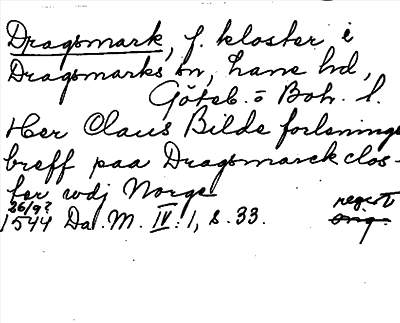 Dragsmark, f. kloster i
Dragsmarks sn, Lane hd,
Göteb. o Boh. l.
Her Claus Bilde forlenings
breff paa Dragsmarck clos-
ter udj Norge
26/9?
1544 Da. M. IV: 1, s. 33. regest
orig.